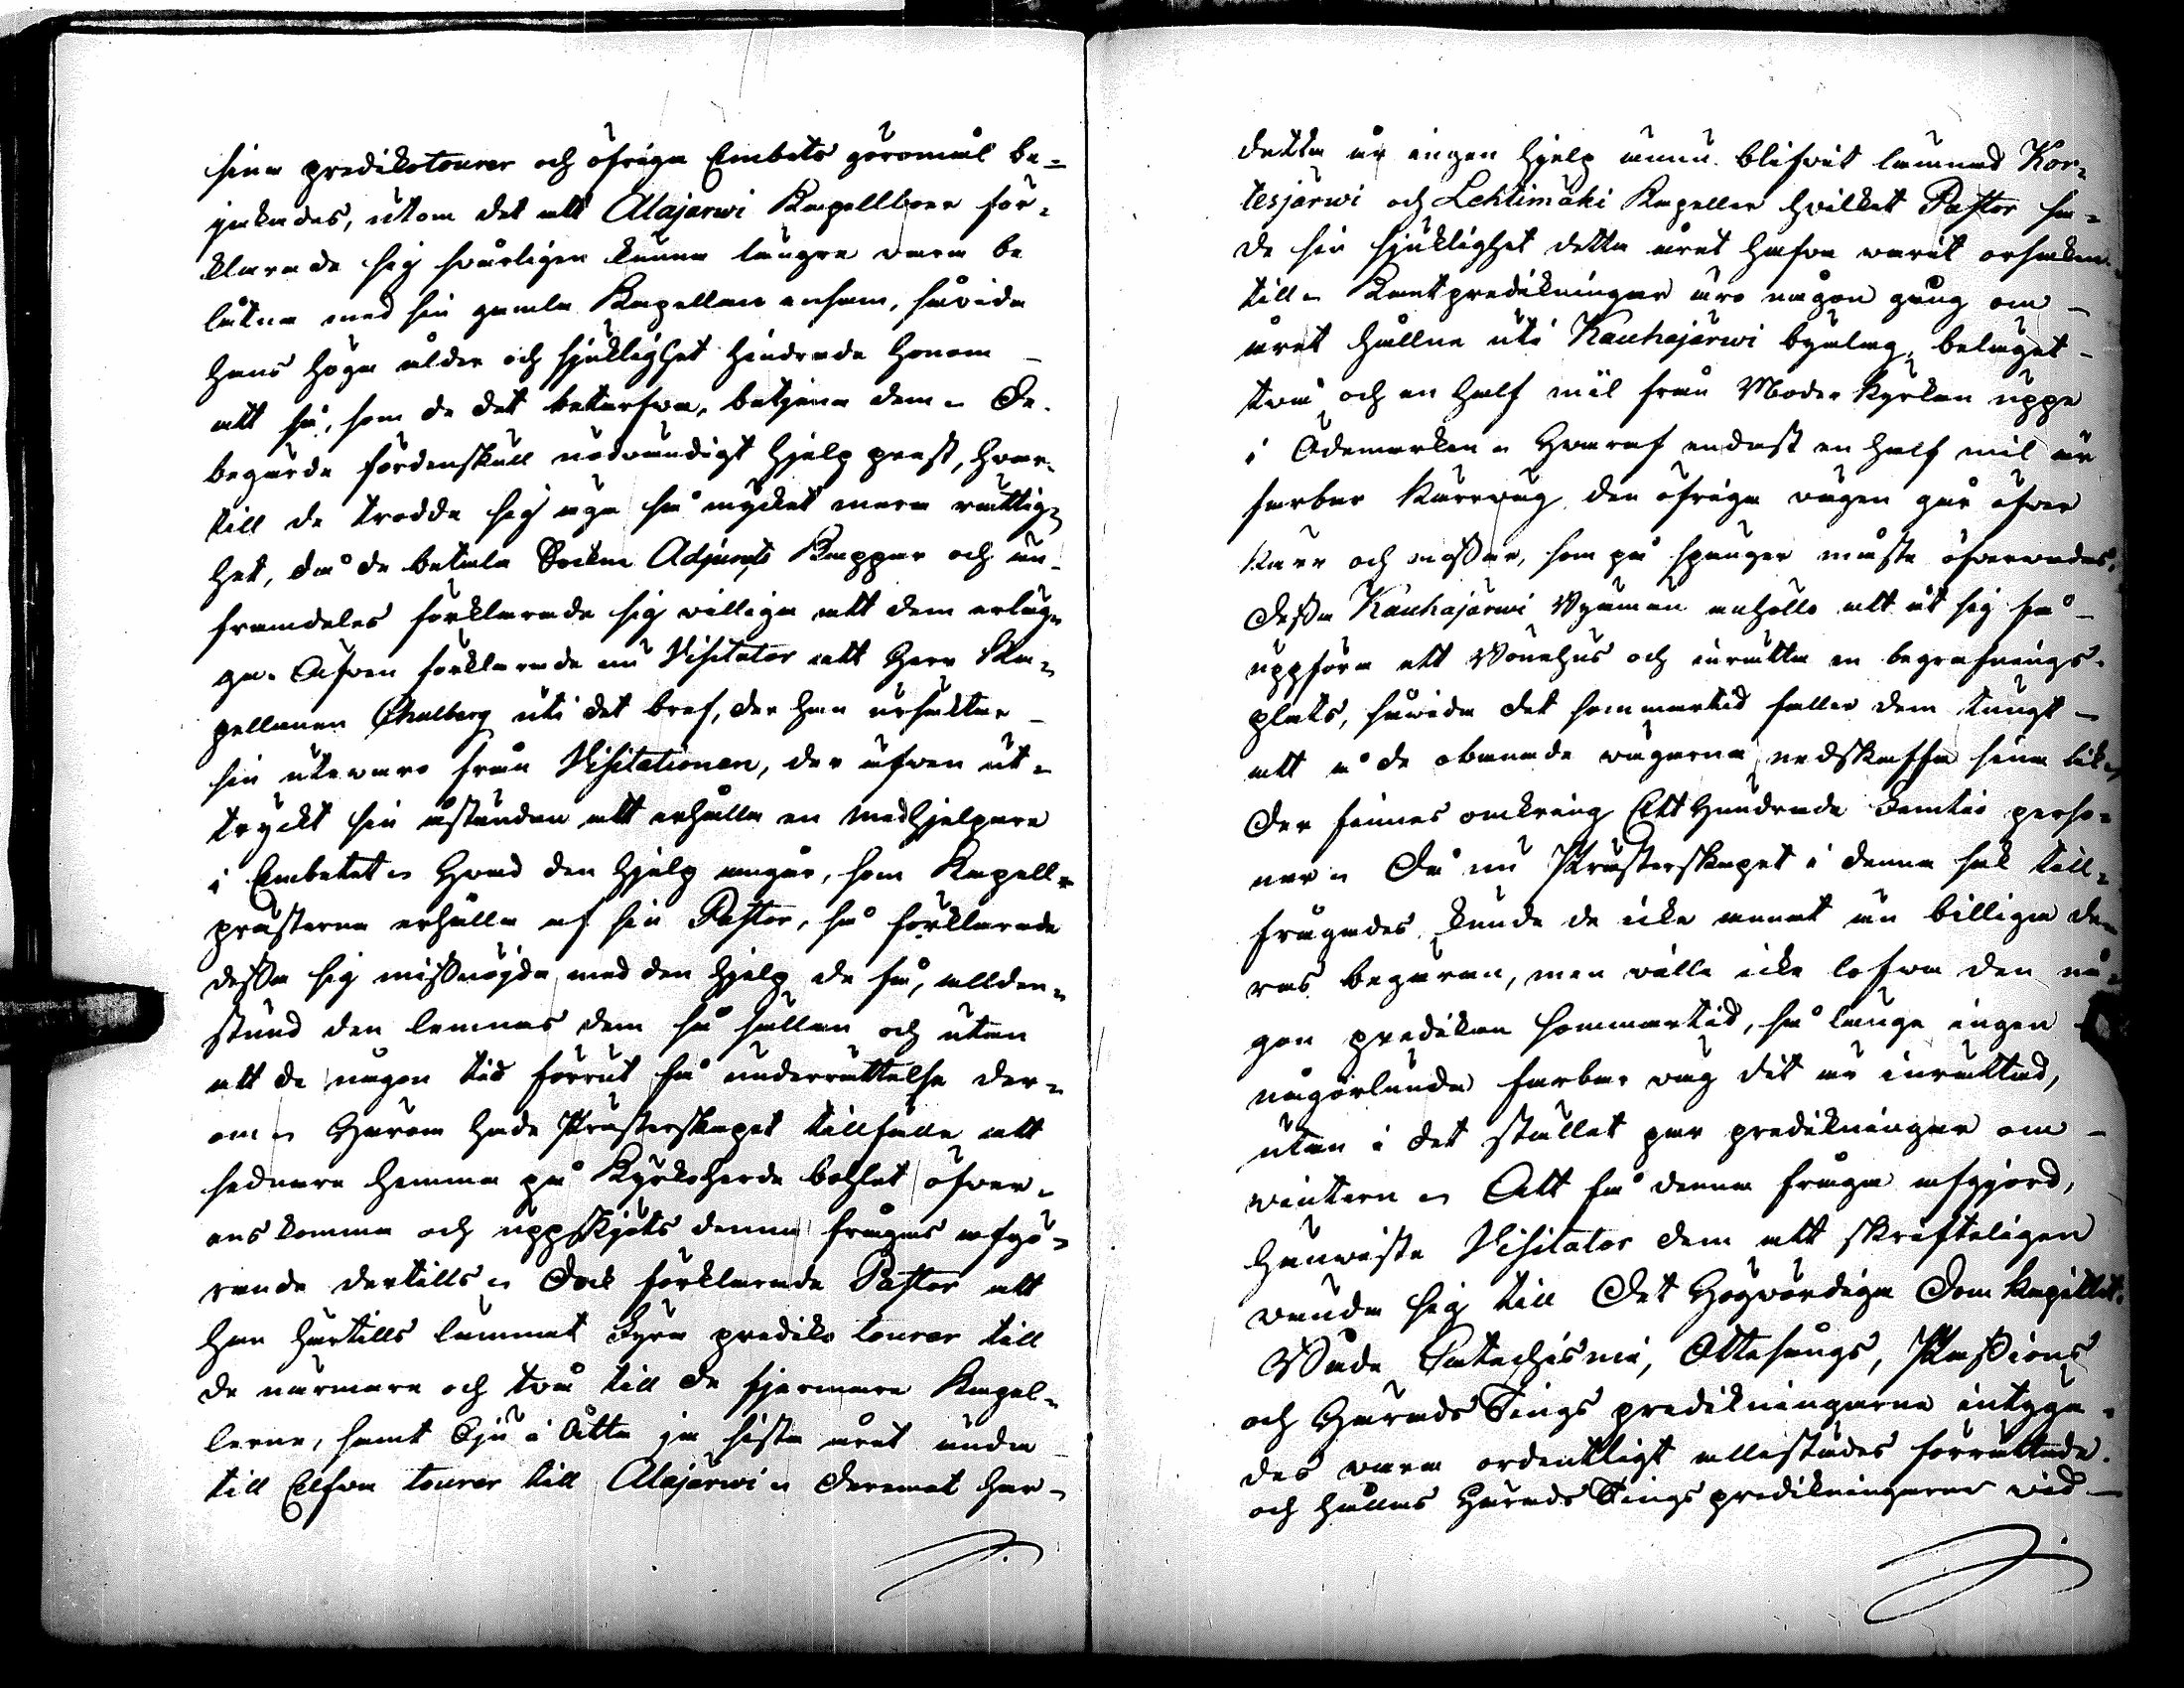 sina predikotourer och öfriga Embets göromål be=
jakades, utom det att Alajärwi Kapellboer för=
klarade sig svårligen kunna längre vara be
låtna med sin gamla Kapellan ensam, såvida
hans höga ålder och sjuklighet hindrade honom
att så, som de det betarfva, betjena dem. De
begärde fördenskull nödvändigt hjelp prest, hvar=
till de trodde sig äga så mycket mera rättig=
het, då de betala Sockne Adjuncts Kappar och än=
framdeles förklarade sig villiga att dem erläg=
ga. Äfven förklarade nu Visitator att Herr Ka=
pellanen Chalberg uti det bref, der han ursäktar
sin utewaro från Visitationen, der äfven ut=
tryckt sin åstundan att erhålla en medhjelpare
i Embetet. Hvad den hjelp angår, som Kapell=
prästerna erhålla af sin Pastor, så förklarade
dessa sig missnöjda med den hjelp de få, allden=
stund den lemnas dem så sällan och utan
att de någon tid förrut få underrättelse der=
om. Härom hade Prästerskapet tillfälle att
sednare hemma på Kyrkoherde bohlet öfver=
ens komma och uppskjöts denna frågas afgö=
rande dertills. Dock förklarade Pastor att
han härtills lemnat Fyra prediko tourer till
de närmare och två till de fjermare Kapel=
lerne, samt Sju à Åtta ja sista året ända
till Elfva tourer till Alajärwi. Deremot har
detta år ingen hjelp ännu blifvit lämnad Kor=
tesjärwi och Lehtimäki Kapeller hvilket Pastor sa=
de sin sjuklighet detta året hafva warit orsaken
till. Bentpredikningar äro någon gång om
året hållne uti Kauhajärwi byalag, beläget
två och en half mil från Moder Kyrkan uppe
i Ödemarken. Hvaraf endast en half mil är
farbar Kärrwäg, den öfriga vägen går öfver
Kärr och mossar, som på spänger måste öfvervadas.
Dessa Kauhajärwi Byamän anhöllo att åt sig få
uppföra ett Bönehus och inrätta en begrafnings=
plats, såvida det sommartid faller dem tungt
att å de obanade vägarna nedskaffa sina lik.
Der finnes omkring Ett Hundrade Femtio perso=
ner. Då nu Prästerskapet i denna sak till=
frågades kunde de icke annat än billiga de=
ras begäran, men ville icke lofva den nå=
gon predikan sommartid, så länge ingen
någorlunda farbar väg dit är inrättad,
utan i det stället par predikningar om
vintern. Att få denna fråga afgjord,
hänwiste Visitator dem att skrifteligen
vända sig till Det Högvördiga Dom Kapitlet.
Både Catechismi, Ottesångs, Passions
och Härads Tings predikningarna intyga=
des vara ordentligt allestädes förrättade.
och hållas Härads Tings predikningarne vid